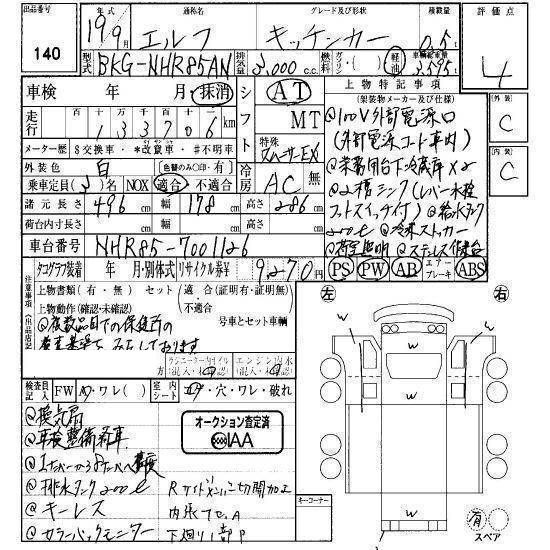 出品番号
140
年式
19/9
通称名
エルフ
グレード及び形状
キッチンカー
積載量
0.5t
評価点
4
型式
BKG-NHR85AN
排気量
3,000 c.c.
燃料
ガソリン ( ) 軽油
車輌総重量
3,595
車検 年 月・抹消
シフト
AT
MT
上物特記事項
(架装物メーカー及び仕様)
[外装]
C
[内装]
C
走行
十万千百十
133706 km
メーター歴 $交換車・*改竄車・#不明車
特殊
スムーサーEX
外装色 白 (色替のみ○印・有)
乗車定員(3)名 NOX 適合 不適合
冷房
AC 無
諸元長さ 496 cm 幅 178 cm 高さ 286 cm
荷台内寸長さ cm 幅 cm 高さ cm
車台番号 NHR85-7001126
@100V外部電源口
(外部電源コード車内)
@業務用台下冷蔵庫x2
@2槽シンク(レバー水栓
フットスイッチ付)@給水タンク
200ℓ @冷凍ストッカー
@荷室照明 @ステンレス作業台
PS PW AB エアーブレーキ ABS
タコグラフ装着 年 月・別体式 リサイクル券¥ 9,270円
注意事項(出品店記)
上物書類(有・無) セット(適合(証明有・証明無)
上物動作(確認・未確認) 不適合
号車とセット車輌
@複数品目での保健所の
検査基準で みたしております
左
右
検査員記入 FW A・ワレ( ) 室内シート コゲ・穴・ワレ・破れ
オークション査定済
AIAA
@換気扇
@車検整備渡車
@1ナンバーから8ナンバーへ
@排水タンク200ℓ
@キーレス
@カラーバックモニター
内張フセ.A
下廻り部P
キーコーナー
W
W
W
W
W
W
有
スペア